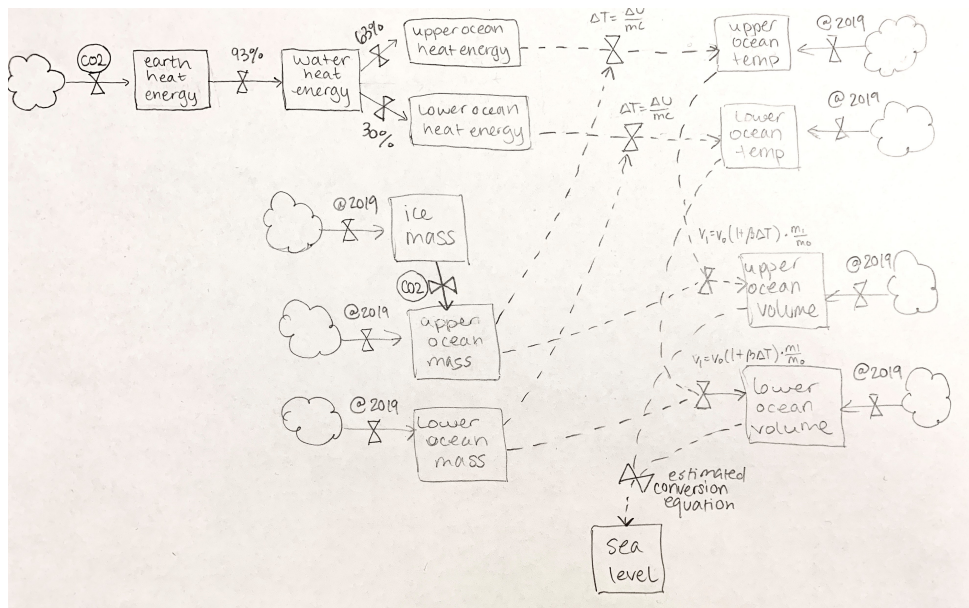 CO2
earth
heat
energy
93%
water
heat
energy
63%
30%
upper ocean
heat energy
Lower ocean
heat energy
ΔT = ΔU/mc
ΔT = ΔU/mc
upper
ocean
temp
@2019
Lower
ocean
temp
@2019
@2019
ice
mass
CO2
@2019
upper
ocean
mass
@2019
Lower
ocean
mass
V₁=V₀(1+βΔT)·m₁/m₀
upper
ocean
volume
@2019
V₁=V₀(1+βΔT)·m₁/m₀
lower
ocean
volume
@2019
estimated
conversion
equation
sea
level